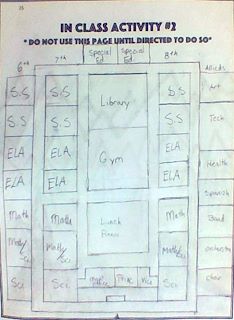 IN CLASS ACTIVITY #2
* DO NOT USE THIS PAGE UNTIL DIRECTED TO DO SO*
6th
7th
Special Ed
Special Ed.
8th
S.S
S.S
S.S
S.S
S.S
S.S
ELA
ELA
ELA
ELA
ELA
ELA
Math
Math
Math
Math/Sci
Math/Sci
Math/Sci
Sci
Sci.
Sci
Library
Gym
Lunch
Room
Art
Tech
Health
Spanish
Band
Orchestra
Choir